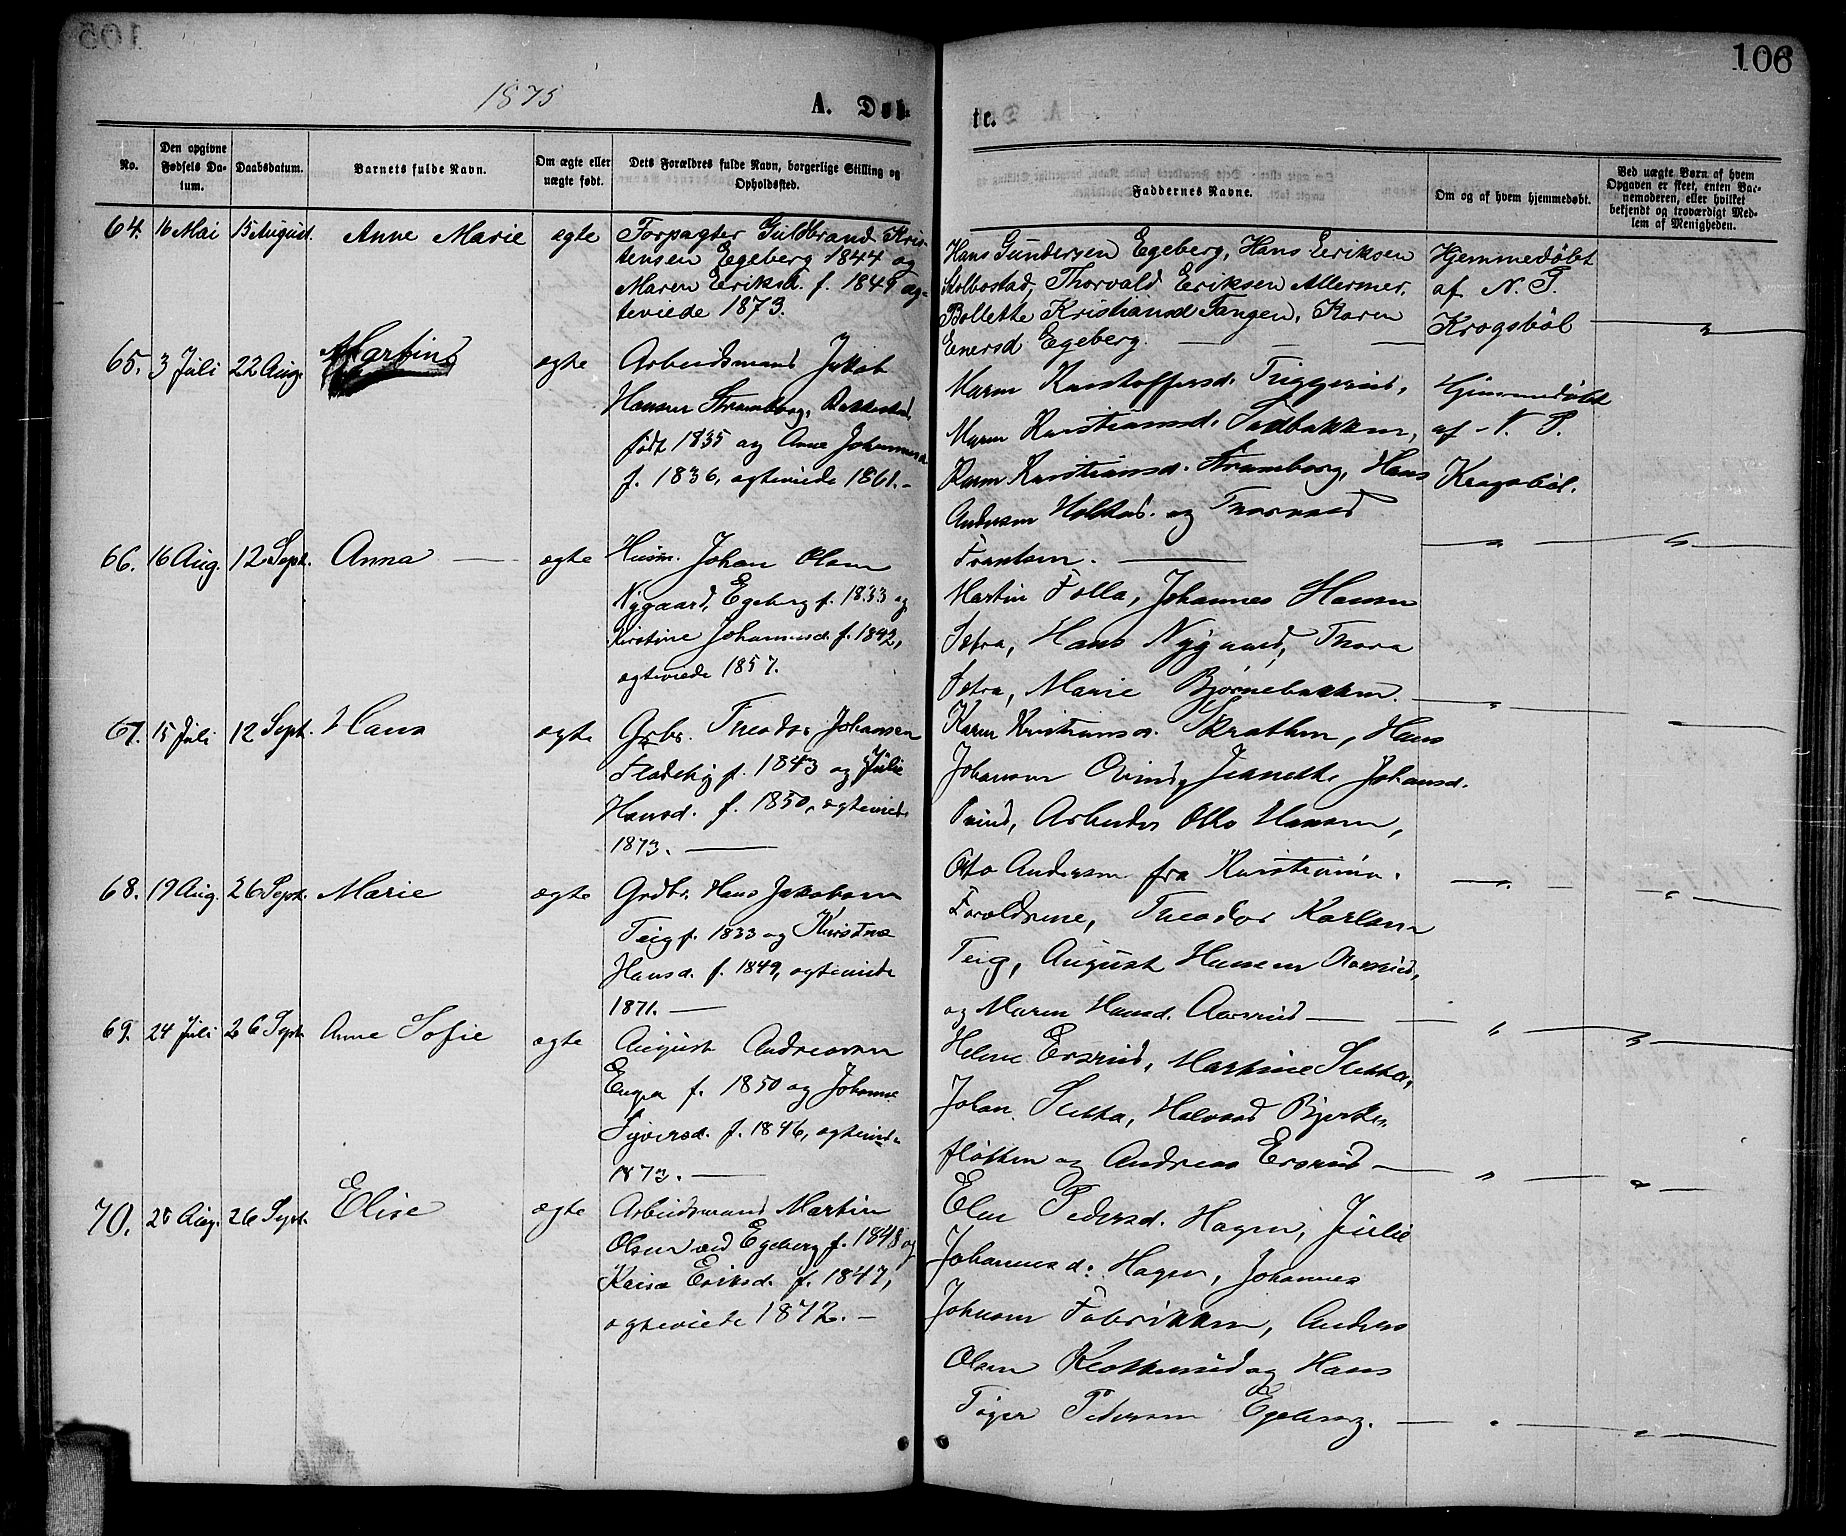 106
1875
A. Døb-
te.
No.
Den opgivne Fødsels Da-tum.
Daabsdatum.
Barnets fulde Navn.
Om ægte eller uægte født.
Dets Forældres fulde Navn, borgerlige Stilling og Opholdssted.
Faddernes Navne.
Om og af hvem hjemmedøbt.
Ved uægte Børn af hvem Opgaven er skeet, enten Bar-nemoderen, eller hvilket bekjendt og troværdigt Med-lem af Menigheden.
64. 16 Mai 15 August. Anne Marie ægte
Forpagter Guldbrand Kris-
tensen Egeberg 1844 og
Maren Eriksd. f. 1849 æg-
teviede 1873.
Hans Gundersen Egeberg, Hans Eriksen
Kolbostad, Thorvald Eriksen Allermer,
Bollette Kristiansd Tangen, Karen
Enersd Egeberg.
Hjemmedøbt
af N. P.
Krogsbøl
65. 3 Juli 22 Aug. Martins ægte
Arbeidsmand Jakob
Hansen Stramborg,
født 1835 og Anne Johannesd
f. 1836, ægteviede 1861.
Maren Kristoffersd. Triggerud,
Maren Kristiansd.
Karen Kristiansd. Stramborg, Hans
Andersen og Thorvald
Hjemmedøbt
af N. P.
Krogsbøl.
66. 16 Aug. 12 Sept. Anna ægte
Husm. Johan Olsen
Nygaard, Egeberg f. 1833 og
Kirstine Johannesd. f. 1842,
ægteviede 1857.
Martin Folla, Johannes Hansen
Sætra, Hans Nygaard, Thora
Sætra, Marie Bjørnebakken.
67. 15 Juli 12 Sept. Hans ægte
Grbr. Theodor Johansen
Fladeby f. 1843 og Julie
Hansd. f. 1850, ægteviede
1873.
Karen Kristiansd. Skrathen, Hans
Johansen Ovind, Jeanette Johansd.
Ovind, Arbeider Otto Hansen,
Otto Andersen fra Kristiania.
68. 19 Aug. 26 Sept. Marie ægte
Grdbr. Hans Jakobsen
Teig f. 1833 og Kirstine
Hansd. f. 1849, ægteviede
1871.
Forældrene, Theodor Karlsen
Teig, August Hansen Aasrud,
og Maren Hansd. Aasrud
69. 24 Juli 26 Sept. Anne Sofie ægte
August Andreasen
Enga f. 1850 og Johanne
Syversd. f. 1846, ægteviede
1873.
Helene Ersrud, Martine Sletta,
Johan Sletta, Halvard Bjerke-
fløtten og Andreas Ersrud
70. 28 Aug. 26 Sept. Elise ægte
Arbeidsmand Martin
Olsen ved Egeberg f. 1848 og
Kaisa Eriksd. f. 1847,
ægteviede 1872.
Elen Pedersd. Hagen, Julie
Johannesd. Hagen, Johannes
Johnsen Fabrikken, Anders
Olsen Klokkerud og Hans
Tøger Pedersen Egeberg.